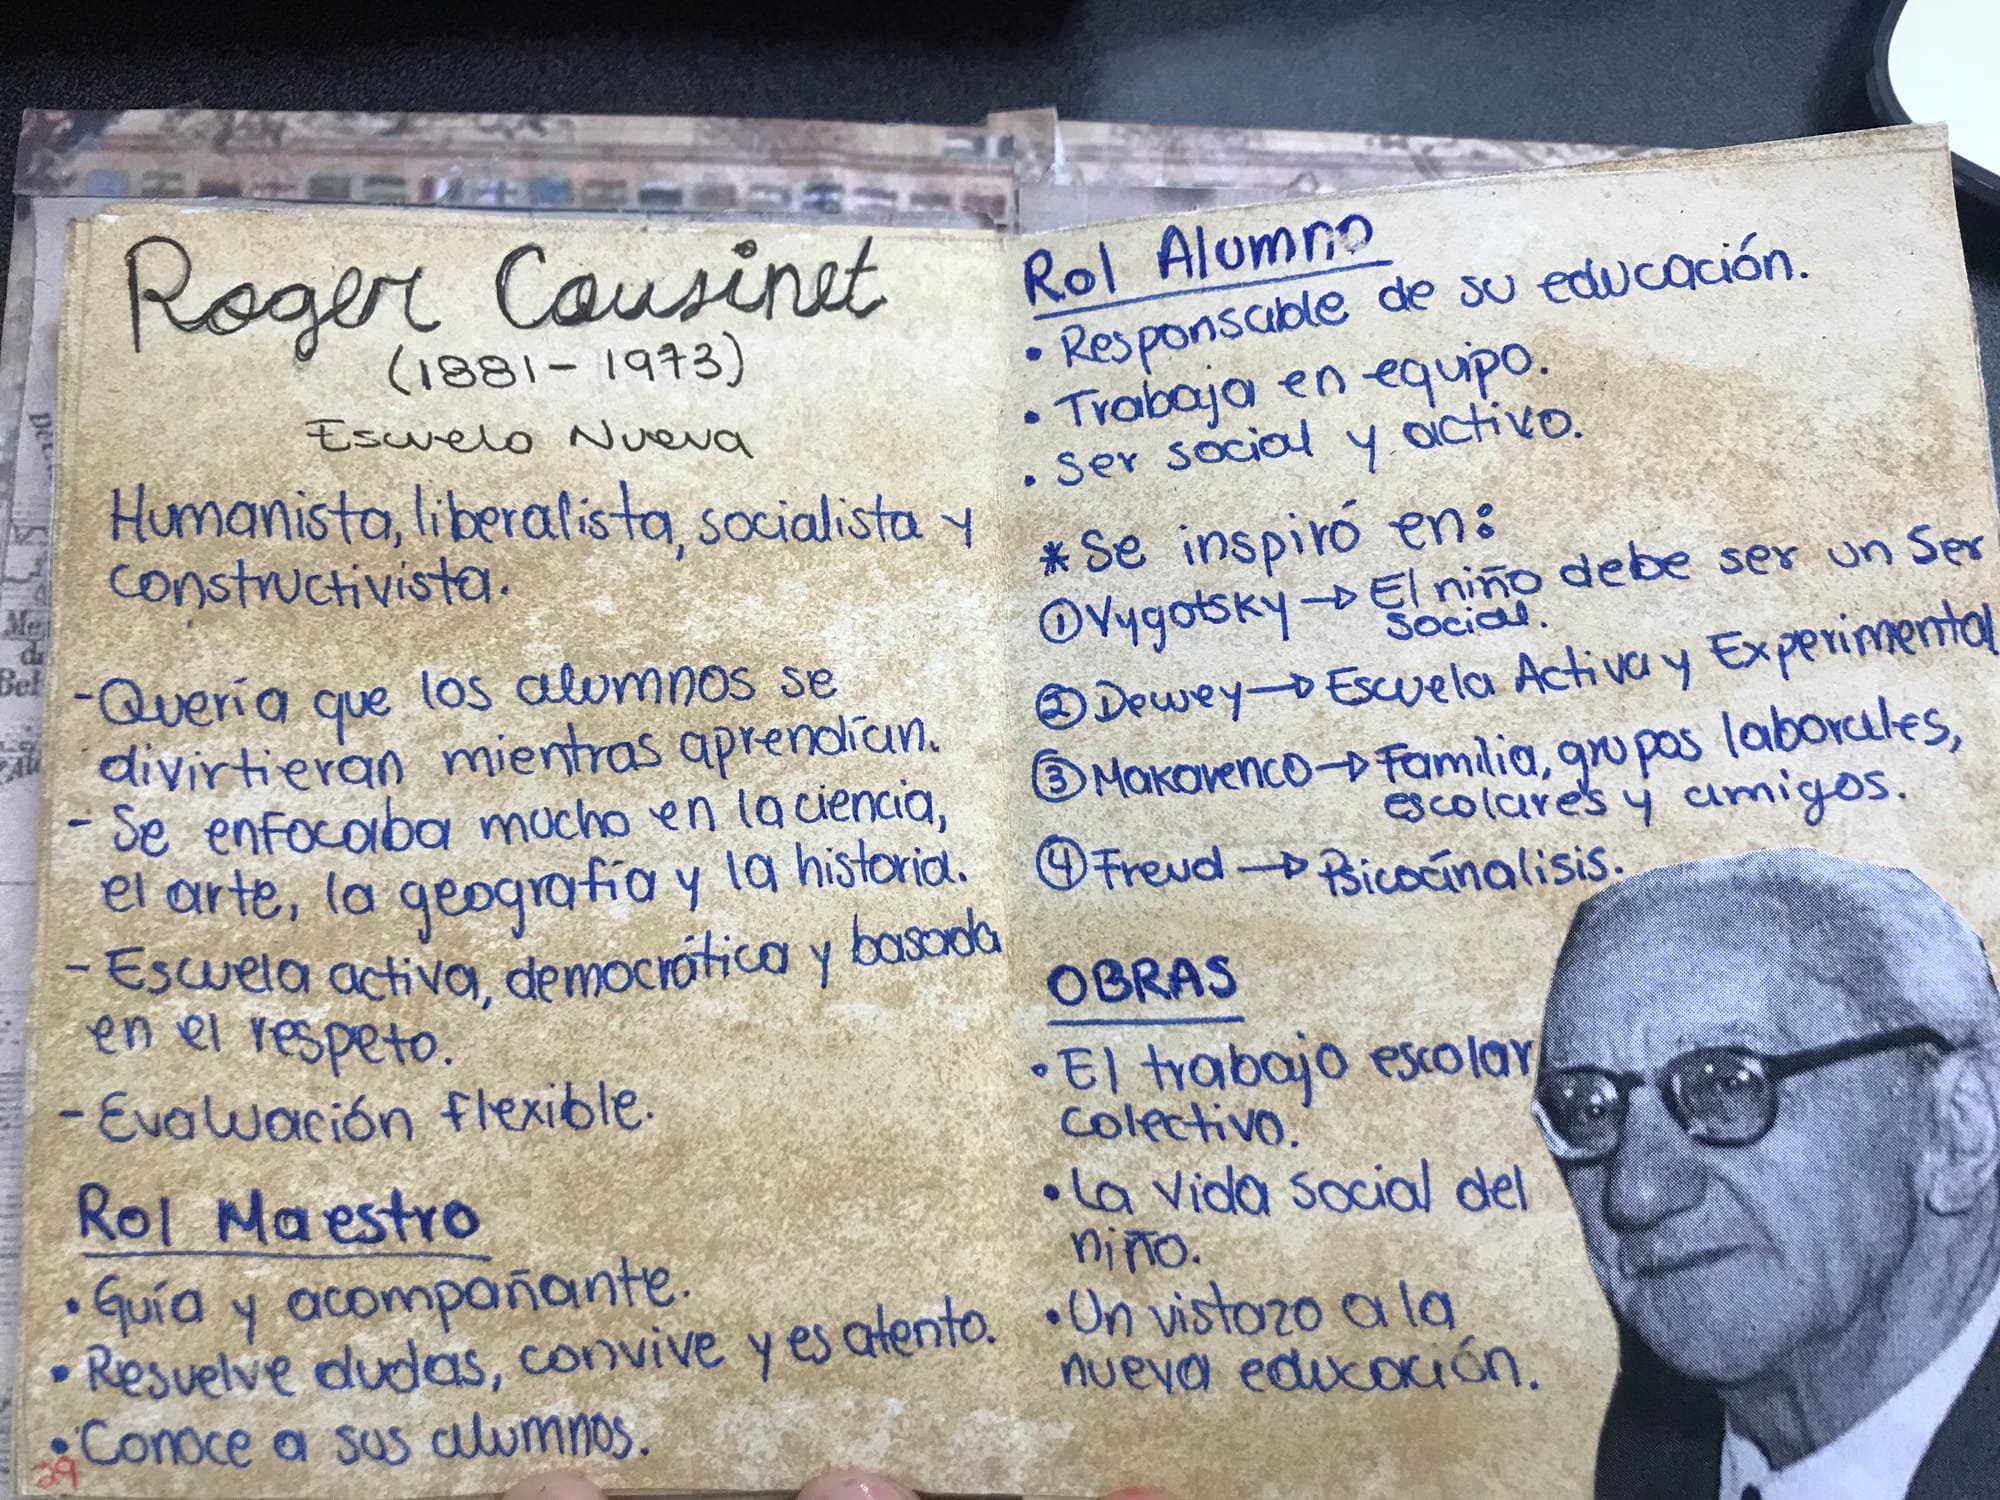 Roger Cousinet
(1881-1973)
Escuela Nueva
Humanista, liberalista, socialista y
constructivista.
-Quería que los alumnos se
divirtieran mientras aprendían.
- Se enfocaba mucho en la ciencia,
el arte, la geografía y la historia.
- Escuela activa, democrática y basada
en el respeto.
- Evaluación flexible.
Rol Maestro
• Guía y acompañante.
• Resuelve dudas, convive y es atento.
• Conoce a sus alumnos.
29
Rol Alumno
• Responsable de su educación.
• Trabaja en equipo.
• Ser social y activo.
* Se inspiró en:
① Vygotsky → El niño debe ser un Ser
social.
② Dewey → Escuela Activa y Experimental
③ Makarenco → Familia, grupos laborales,
escolares y amigos.
④ Freud → Psicoánalisis.
OBRAS
• El trabajo escolar
colectivo.
• La vida social del
niño.
• Un vistazo a la
nueva educación.